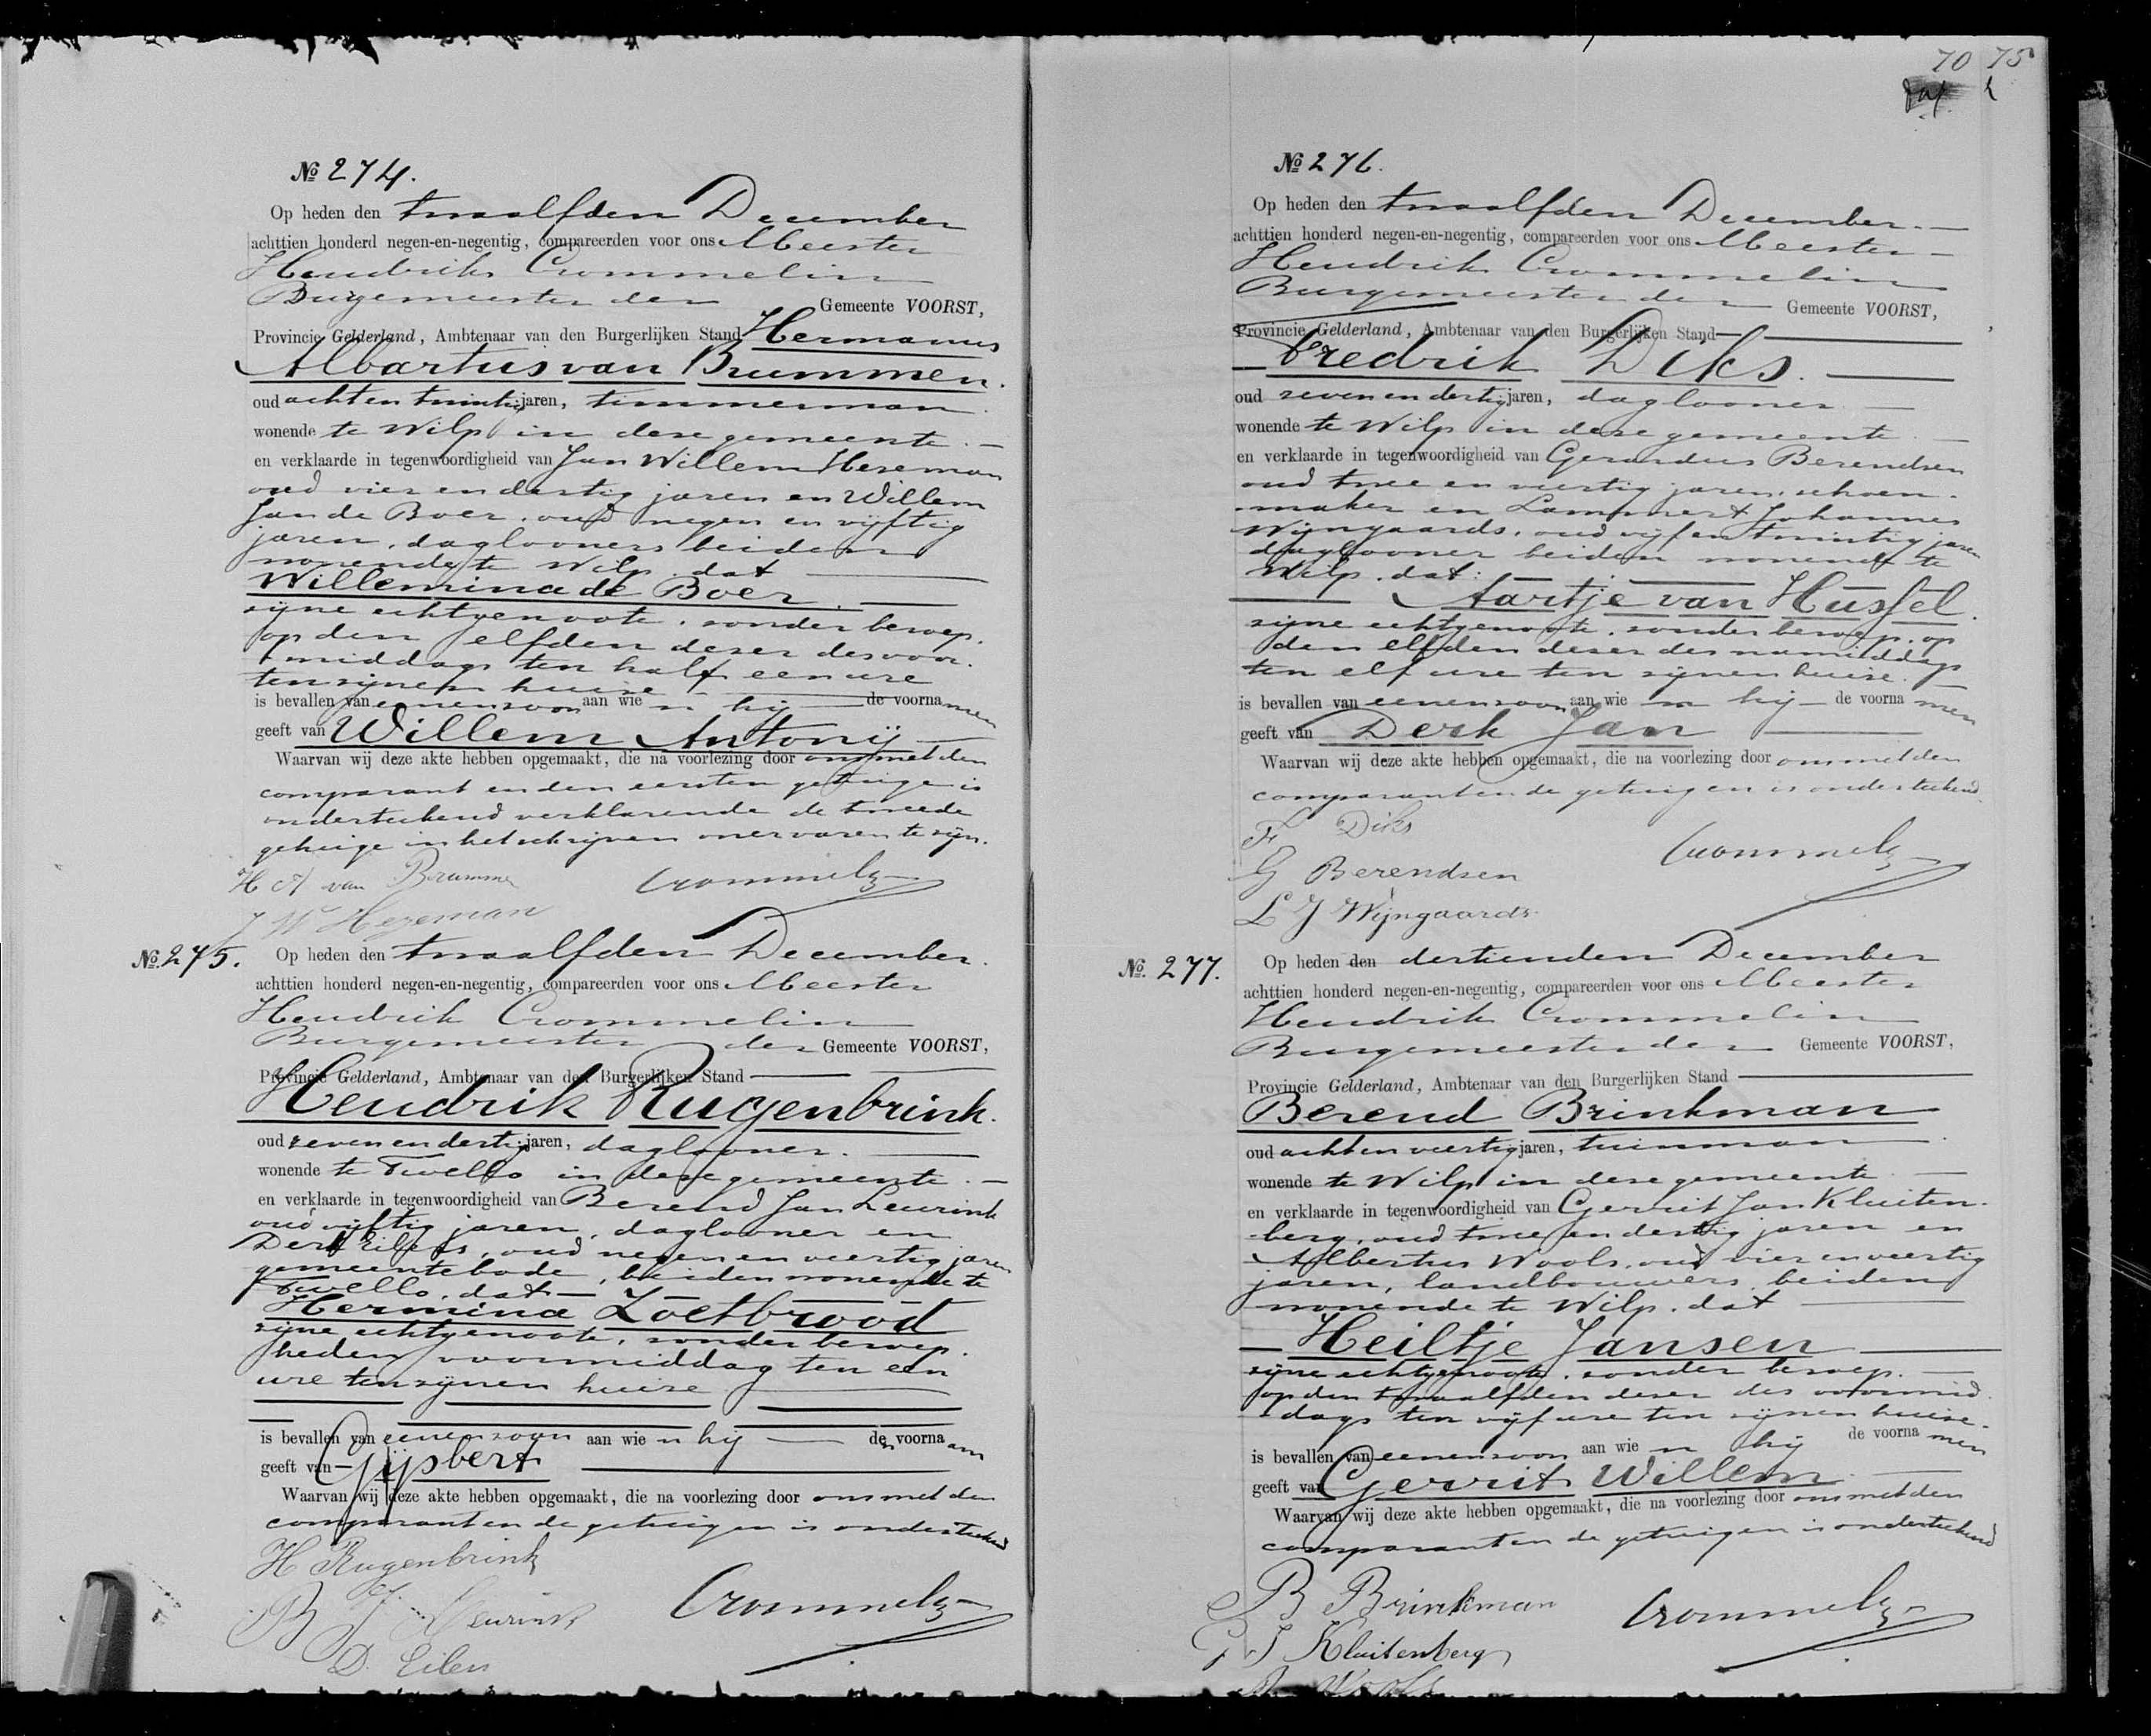 70 75
№ 274.
Op heden den twaalfden December
achttien honderd negen-en-negentig, compareerden voor ons Meester
Hendrik Crommelin
Burgemeester der Gemeente VOORST,
Provincie Gelderland, Ambtenaar van den Burgerlijken Stand Hermanus
Albartus van Brummen.
oud acht en twintig jaren, timmerman
wonende te Wilp in deze gemeente.
en verklaarde in tegenwoordigheid van Jan Willem Hezeman
oud vier en dertig jaren en Willem
Jan de Boer, oud negen en vijftig
jaren, daglooners beiden
wonende te Wilp, dat
Willemina de Boer.
zijne echtgenoote, zonder beroep.
op den elfden dezer des voor-
middags ten half een ure
ten zijnen huize
is bevallen van eenen zoon aan wien hij de voornamen
geeft van Willem Antonij
Waarvan wij deze akte hebben opgemaakt, die na voorlezing door ons met den
comparant en den eersten getuige is
onderteekend verklarende de tweede
getuige in het schrijven onervaren te zijn.
H A van Brumme
Crommelin
J W Hezeman
№ 275. Op heden den twaalfden December.
achttien honderd negen-en-negentig, compareerden voor ons Meester
Hendrik Crommelin
Burgemeester der Gemeente VOORST,
Provincie Gelderland, Ambtenaar van den Burgerlijken Stand
Hendrik Rugenbrink.
oud zeven en dertig jaren, daglooner.
wonende te Twello in deze gemeente.
en verklaarde in tegenwoordigheid van Berend Jan Leurink
oud vijftig jaren, daglooner en
Derk Eilers, oud negen en veertig jaren
gemeentebode, beiden wonende te
Twello, dat
Hermina Zoetbrood
zijne echtgenoote, zonder beroep.
heden voormiddag ten een
ure ten zijnen huize
is bevallen van eenen zoon aan wien hij den voornaam
geeft van Gijsbert
Waarvan wij deze akte hebben opgemaakt, die na voorlezing door ons met den
comparant en de getuigen is onderteekend
H Rugenbrink
B J Leurink
Crommelin
D. Eilers
№ 276.
Op heden den twaalfden December.
achttien honderd negen-en-negentig, compareerden voor ons Meester
Hendrik Crommelin
Burgemeester der Gemeente VOORST,
Provincie Gelderland, Ambtenaar van den Burgerlijken Stand
Fredrik Diks.
oud zeven en dertig jaren, daglooner
wonende te Wilp in deze gemeente
en verklaarde in tegenwoordigheid van Gerardus Berendsen
oud twee en veertig jaren, schoen-
maker en Lammert Johannes
Wijngaards, oud vijf en twintig jaren
daglooner beiden wonende te
Wilp, dat:
Aartje van Hussel.
zijne echtgenoote, zonder beroep, op
den elfden dezer des namiddags
ten elf ure ten zijnen huize.
is bevallen van eenen zoon aan wien hij de voornamen
geeft van Derk Jan
Waarvan wij deze akte hebben opgemaakt, die na voorlezing door ons met den
comparant en de getuigen is onderteekend.
F. Diks
Crommelin
G Berendsen
L J Wijngaards
№ 277. Op heden den dertienden December
achttien honderd negen-en-negentig, compareerden voor ons Meester
Hendrik Crommelin
Burgemeester der Gemeente VOORST,
Provincie Gelderland, Ambtenaar van den Burgerlijken Stand
Berend Brinkman
oud acht en veertig jaren, tuinman
wonende te Wilp in deze gemeente
en verklaarde in tegenwoordigheid van Gerrit Jan Kluiten-
berg, oud twee en dertig jaren en
Albertus Wools, oud vier en veertig
jaren, landbouwers, beiden
wonende te Wilp, dat
Heiltje Jansen
zijne echtgenoote, zonder beroep.
op den twaalfden dezer des voormid-
dags ten vijf ure ten zijnen huize.
is bevallen van eenen zoon aan wien hij de voornamen
geeft van Gerrit Willem
Waarvan wij deze akte hebben opgemaakt, die na voorlezing door ons met den
comparant en de getuigen is onderteekend
B Brinkman
Crommelin
G J Kluitenberg
A Wools